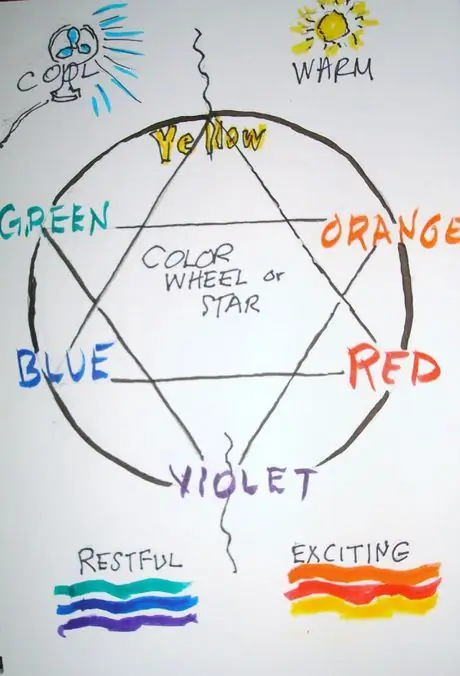 COOL
WARM
Yellow
GREEN
ORANGE
COLOR
WHEEL or
STAR
BLUE
RED
VIOLET
RESTFUL
EXCITING